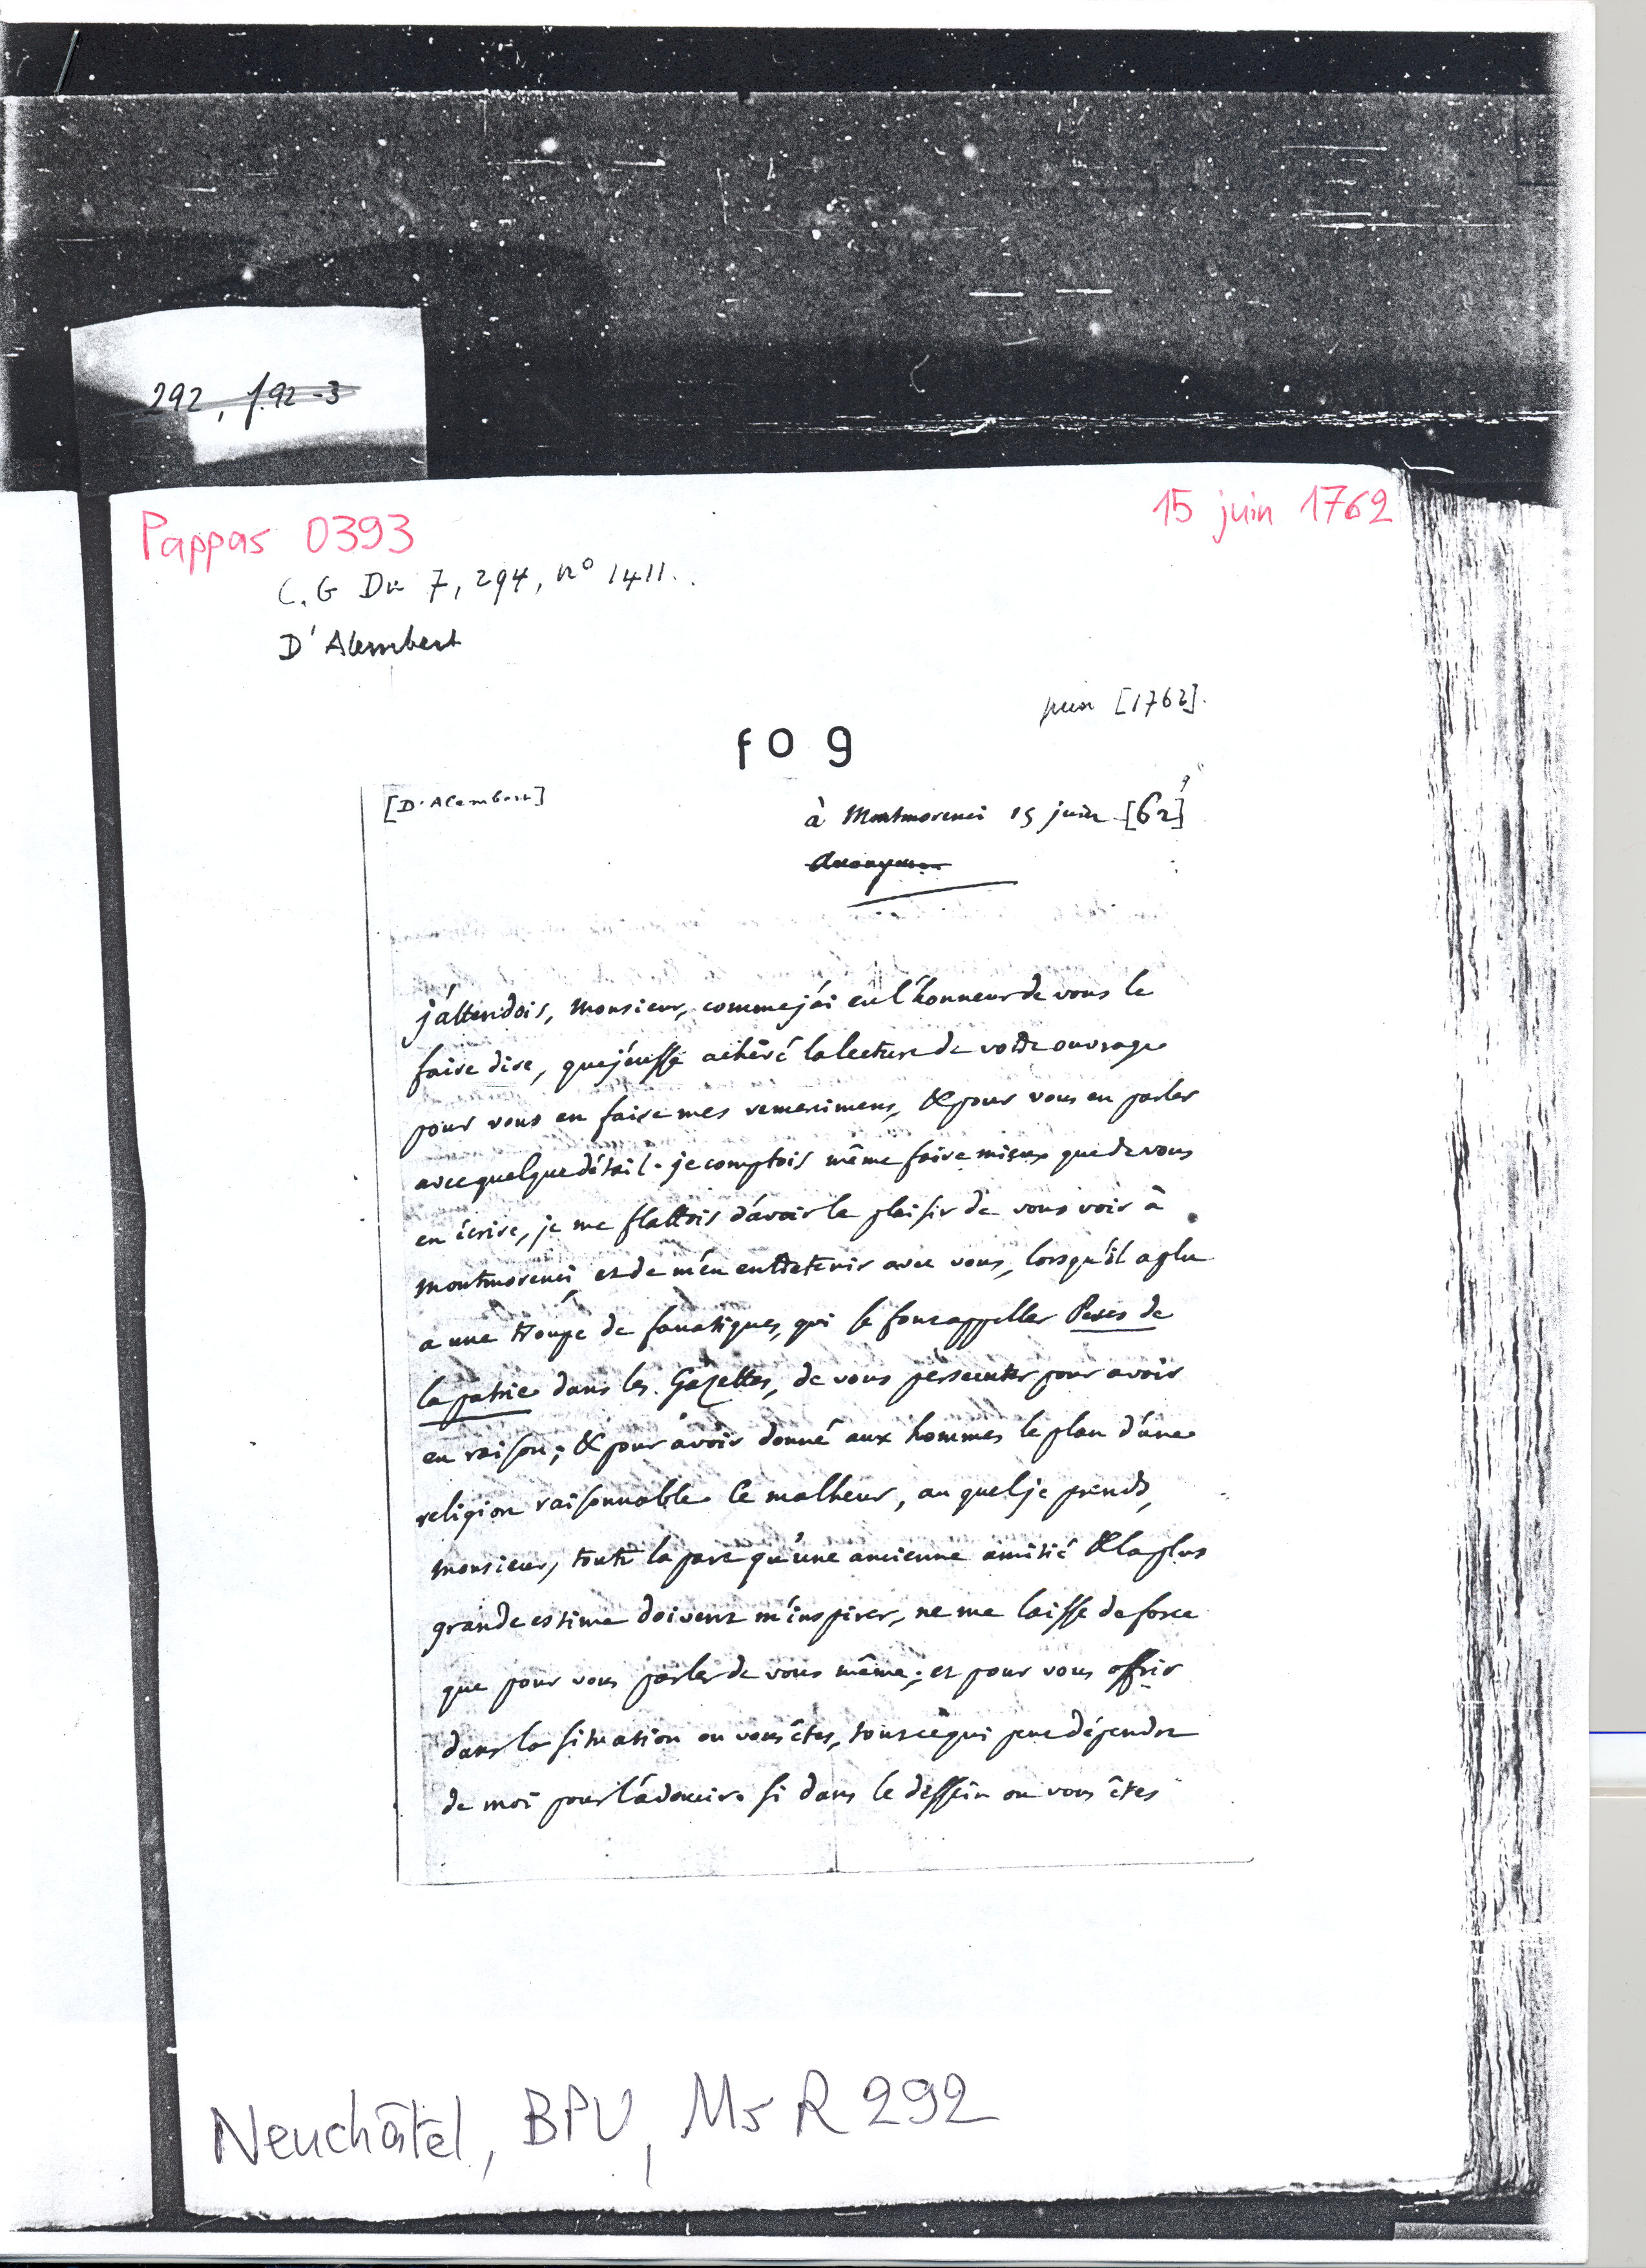 292, f.92-3
Pappas 0393
15 juin 1762
C.G Du 7, 294, n° 1411..
D'Alembert
juin [1762].
fo 9
[D'Alembert]
à Montmorenci 15 juin [62]
?
j'attendois, Monsieur, comme j'ai eu l'honneur de vous le
faire dire, que j'eusse achevé la lecture de votre ouvrage
pour vous en faire mes remercimens, & pour vous en parler
avec quelque détail. je comptois même faire mieux que de vous
en écrire, je me flattois d'avoir le plaisir de vous voir à
Montmorenci et de m'en entretenir avec vous, lorsqu'il a plu
a une troupe de fanatiques, qui se font appeller Peres de
la patrie dans les Gazettes, de vous persecuter pour avoir
eu raison; & pour avoir donné aux hommes le plan d'une
religion raisonnable. Ce malheur, au quel je prends,
Monsieur, toute la part qu'une ancienne amitié & la plus
grande estime doivent m'inspirer, ne me laisse de force
que pour vous parler de vous même; et pour vous offrir
dans la situation ou vous êtes, tout ce qui peut dépendre
de moi pour l'adoucir. si dans le dessein ou vous êtes
Neuchâtel, BPU, Ms R 292